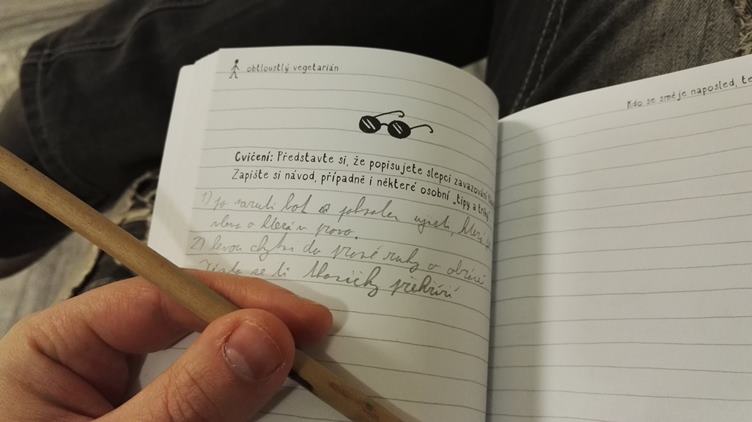 obtloustlý vegetarián
Kdo se směje naposled, te
Cvičení: Představte si, že popisujete slepci zavazování
Zapište si návod, případně i některé osobní „tipy a triky
1) bot a
vlevo a která v pravo.
2) levou chytni do pravé ruky a
se ti tkaničky překříží